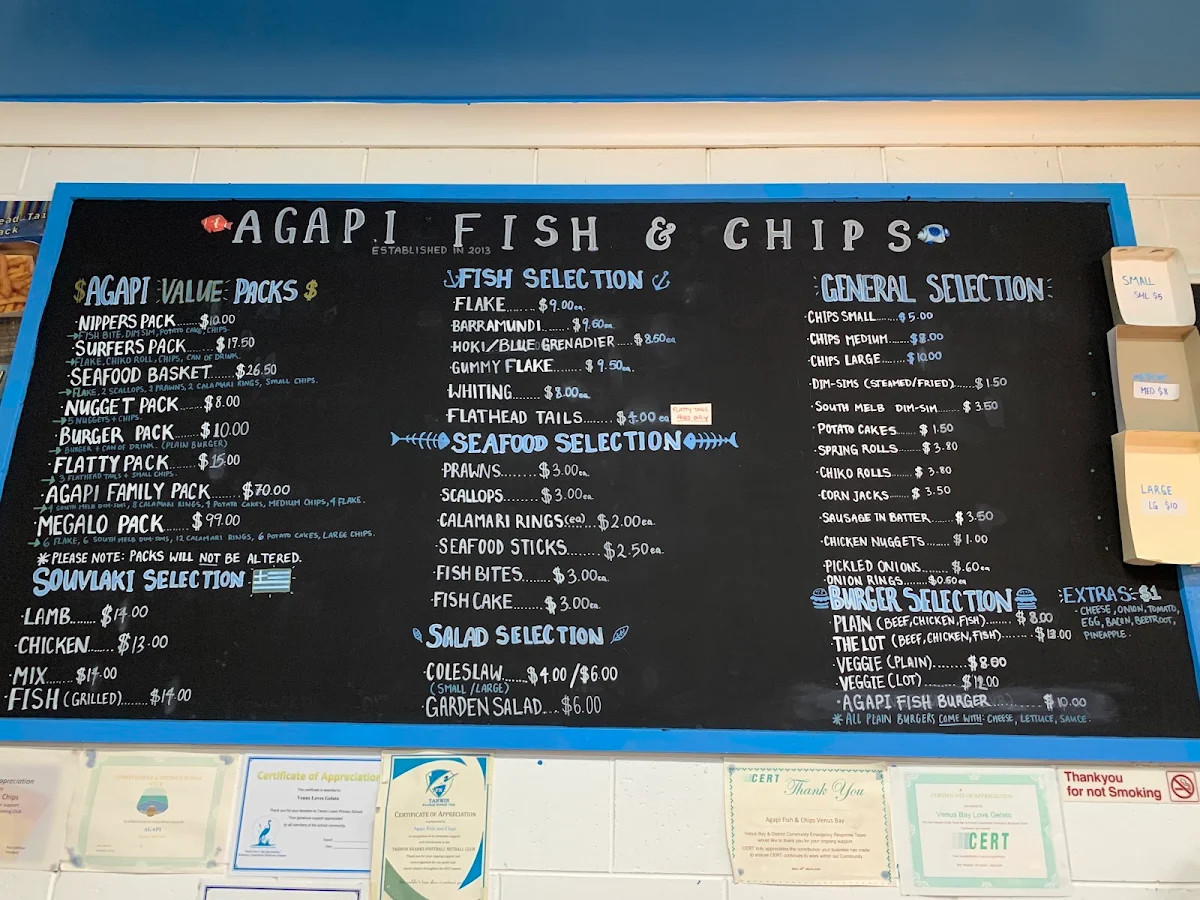 AGAPI FISH & CHIPS
ESTABLISHED IN 2013
$AGAPI VALUE PACKS $
·NIPPERS PACK.......$10.00
→FISH BITE, DIM SIM, POTATO CAKE, CHIPS.
·SURFERS PACK.......$19.50
→FLAKE, CHIKO ROLL, CHIPS, CAN OF DRINK.
·SEAFOOD BASKET....$26.50
→FLAKE, 2 SCALLOPS, 2 PRAWNS, 2 CALAMARI RINGS, SMALL CHIPS.
·NUGGET PACK....$8.00
→5 NUGGETS + CHIPS.
·BURGER PACK....$10.00
→BURGER + CAN OF DRINK. (PLAIN BURGER)
·FLATTY PACK....$15.00
→3 FLATHEAD TAILS + SMALL CHIPS.
·AGAPI FAMILY PACK....$70.00
→4 SOUTH MELB DIM-SIMS, 8 CALAMARI RINGS, 4 POTATO CAKES, MEDIUM CHIPS, 4 FLAKE.
·MEGALO PACK.....$99.00
→6 FLAKE, 6 SOUTH MELB DIM-SIMS, 12 CALAMARI RINGS, 6 POTATO CAKES, LARGE CHIPS.
*PLEASE NOTE: PACKS WILL NOT BE ALTERED.
SOUVLAKI SELECTION
·LAMB......$14.00
·CHICKEN......$13.00
·MIX......$14.00
·FISH (GRILLED)........$14.00
FISH SELECTION
·FLAKE......$9.00ea.
·BARRAMUNDI......$9.60ea.
·HOKI/BLUE GRENADIER....$8.50ea
·GUMMY FLAKE......$9.50ea.
·WHITING......$8.00ea.
·FLATHEAD TAILS.......$4.00 ea
FLATTY TAILS
SEAFOOD SELECTION
·PRAWNS.......$3.00ea.
·SCALLOPS.......$3.00ea.
·CALAMARI RINGS(ea)...$2.00ea.
·SEAFOOD STICKS.......$2.50ea.
·FISH BITES.......$3.00ea.
·FISH CAKE......$3.00ea.
SALAD SELECTION
·COLESLAW......$4.00/$6.00
(SMALL/LARGE)
·GARDEN SALAD....$6.00
GENERAL SELECTION
·CHIPS SMALL......$5.00
·CHIPS MEDIUM.....$8.00
·CHIPS LARGE......$10.00
·DIM-SIMS (STEAMED/FRIED).....$1.50
·SOUTH MELB DIM-SIM....$3.50
·POTATO CAKES...$1.50
·SPRING ROLLS....$3.80
·CHIKO ROLLS....$3.80
·CORN JACKS.....$3.50
·SAUSAGE IN BATTER.....$3.50
·CHICKEN NUGGETS......$1.00
·PICKLED ONIONS.....$.60ea
·ONION RINGS......$0.50ea
BURGER SELECTION
·PLAIN (BEEF,CHICKEN,FISH)......$8.00
·THE LOT (BEEF,CHICKEN,FISH)......$13.00
·VEGGIE (PLAIN)........$8.50
·VEGGIE (LOT)........$12.00
·AGAPI FISH BURGER...........$10.00
*ALL PLAIN BURGERS COME WITH: CHEESE, LETTUCE, SAUCE.
EXTRAS:$1
·CHEESE, ONION, TOMATO,
EGG, BACON, BEETROOT,
PINEAPPLE.
SMALL
SML $5
MED $8
LARGE
LG $10
Chips
AGAPI
Certificate of Appreciation
Venus Loves Gelato
TARWIN
CERTIFICATE OF APPRECIATION
Agapi Fish and Chips
CERT Thank You
Agapi Fish & Chips Venus Bay
Venus Bay & District Community Emergency Response Team
would like to thank you for your ongoing support.
CERT truly appreciates the contribution your business has made
to ensure CERT continues to work within our Community.
CERTIFICATE OF APPRECIATION
Venus Bay Love Gelato
CERT
Thankyou
for not Smoking